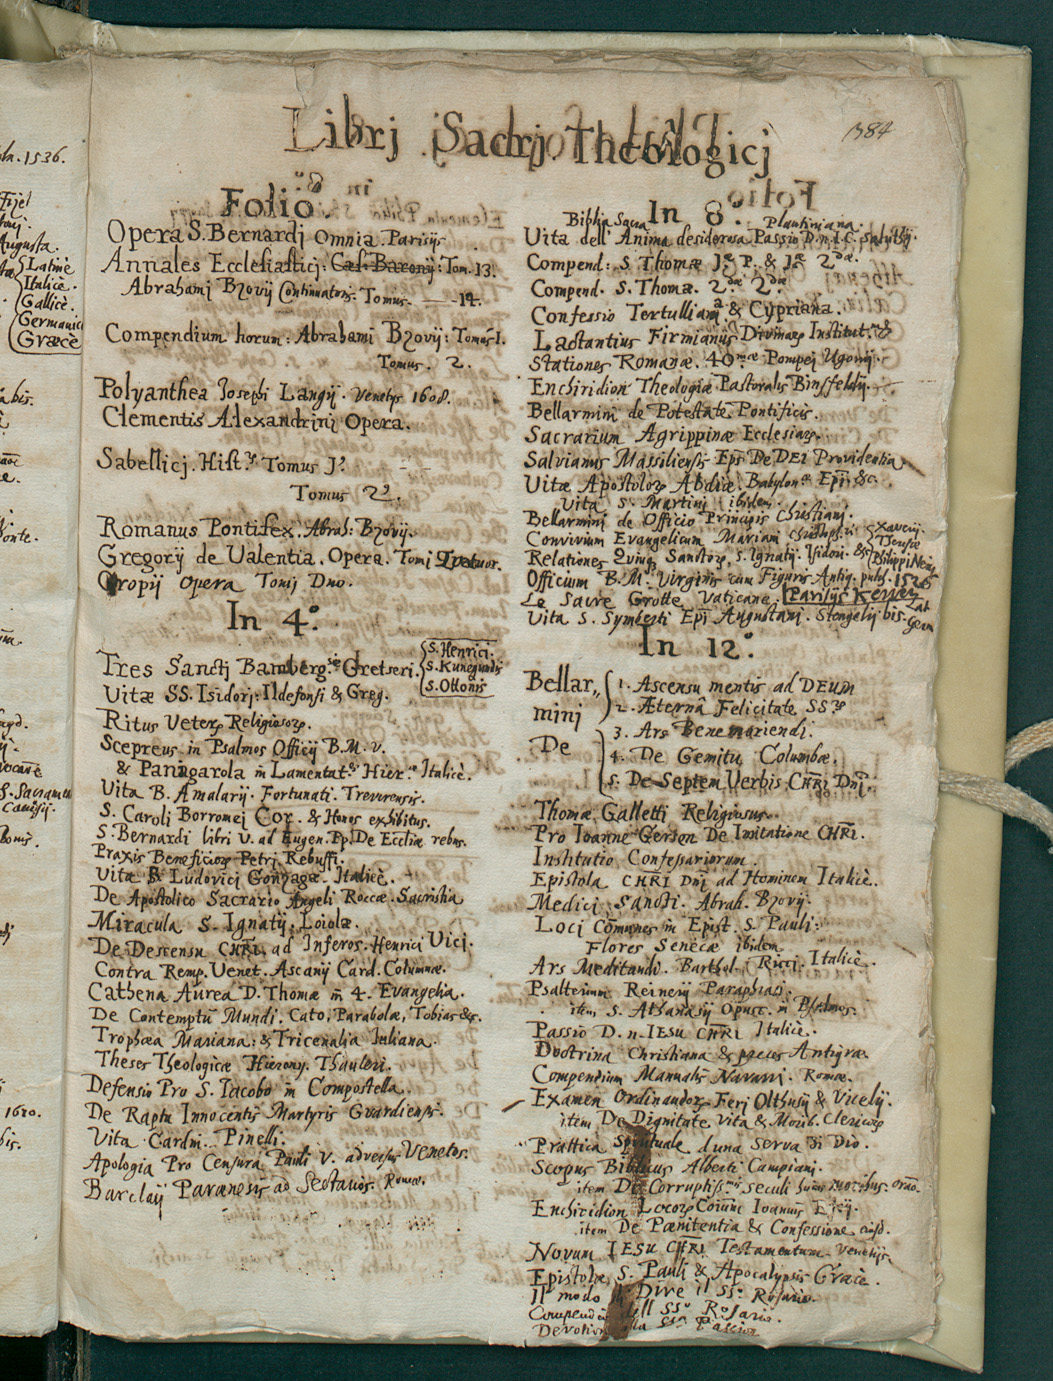 Librj Sacrj Theologicj
1384
Folio.
Opera S. Bernardj omnia Parisijs
Annales Ecclesiasticj: Cæs. Baronij: Tom. 13.
Abrahamj Bzovij Continuatoris. Tomus — 14.
Compendium horum: Abrahami Bzovij: Tomus I.
Tomus. 2.
Polyanthea Josephi Langij. Venetijs 1608.
Clementis Alexandrinj Opera.
Sabellicj. Hist. Tomus J.
Tomus 2.
Romanus Pontifex. Abrah: Bzovij.
Gregorij de Ualentia. Opera. Tomi Quatuor.
Oropij opera Tomj Duo.
In 4º.
Tres Sanctj Bamberg. Gretseri. {S. Henrici.
S. Kunegundis
S. Ottonis
Vitæ SS. Isidorj: Ildefonsi & Greg.
Ritus Veter. Religiosor.
Scepreus in Psalmos Officij B.M.V.
& Panigarola in Lamentat. Hier. Italicè.
Vita B. Amalarij. Fortunati. Treverensis.
S. Caroli Borromei Cor. & Honos exhibitus.
S. Bernardi libri V. ad Eugen. Pp. De Ecclīæ rebus.
Praxis Beneficior. Petrj Rebuffi.
Vita B. Ludovici Gonzagæ. Italicè.
De Apostolico Sacrario Angeli Roccæ. Sacristia
Miracula S. Ignatij. Loiolæ.
De Descensu CHRI. ad Inferos. Henrici Vici.
Contra Remp. Venet. Ascanij Card. Columnæ.
Cathena Aurea D. Thomæ in 4. Evangelia.
De Contemptu Mundi. Cato, Parabolæ, Tobias &c.
Trophæa Mariana: & Tricenalia Juliana.
Theses Theologicæ Hierony. Thauleri.
Defensio Pro S. Iacobo in Compostella.
De Raptu Innocentis Martyris Guardiensis.
Vita Cardin. Pinelli.
Apologia Pro Censura Pauli V. adversus Venetos.
Barclaij Parænesis ad Sectarios. Romæ.
In 8º.
Biblia Sacra Plantiniana.
Vita dell' Anima desiderosa Passio D.n.I.C. Saluthij.
Compend: S. Thomæ Jæ P. & Jæ 2dæ.
Compend. S. Thoma. 2dæ 2dæ
Confessio Tertulliana & Cypriana.
Lactantius Firmianus Divinar. Institut.
Stationes Romanæ. 40mæ Pompej Ugonij.
Enchiridion Theologiæ Pastoralis Binsfeldij.
Bellarmini de Potestate Pontificis.
Sacrarium Agrippinæ Ecclesiar.
Salvianus Massiliensis Eps De DEI Providentia
Vitæ Apostolor. Abdiæ. Babylon. Epi: &c.
Vita S. Martinj ibidem.
Bellarminj de Officio Principis Christianj.
Convivium Evangelicum Mariani
Relationes Quinq. Sanctor. S. Ignatij. Isidori. & {Xaverij.
Teresæ
Philippi Nerij
Officium B.M. Virginis cum Figuris Antiq. publ. 1526
Le Sacre Grotte Vaticane. Parisijs Kerver
Vita S. Symberti Epi Augustani. Stengelij bis. Lat
Germ
In 12º.
Bellarmini De
1. Ascensu mentis ad DEUM
2. Æterna Felicitate SS.
3. Ars Bene moriendi.
4. De Gemitu Columbæ.
5. De Septem Verbis CHRI Dnj.
Thomæ Galletti Religiosus.
Pro Joanne Gerson De Imitatione CHRI.
Institutio Confessariorum.
Epistola CHRI Dnj ad Hominem Italicè.
Medici Sancti. Abrah. Bzovij.
Loci Comunes in Epist. S. Pauli:
Flores Senecæ ibidem
Ars Meditandi. Barthol. Ricci. Italicè.
Psalterium Reinerij Paraphrasi.
item, S. Athanasij Opusc. in Psalmos.
Passio D. n. IESU CHRI Italicè.
Doctrina Christiana & preces Antiquæ
Compendium Manualis Navarri. Romæ.
Examen Ordinandor. Ferj Olthusij & Vicelij.
item De Dignitate, Vita & Morib. Clericor.
Prattica Spirituale d'una Serva di Dio.
Scopus Biblicus Alberti Campianj.
item De Corruptiss. seculi huius moribus. orão.
Enchiridion Locor. Coium Ioannis Eckij.
item De Pænitentia & Confessione eiusd.
Novum IESU CHRI Testamentum. Venetijs.
Epistolæ S. Pauli & Apocalypsis Græcè.
Il modo di Dire il SSº Rosario.
Compendio dell SSº Rosario.
Devotion alla SSa Passion